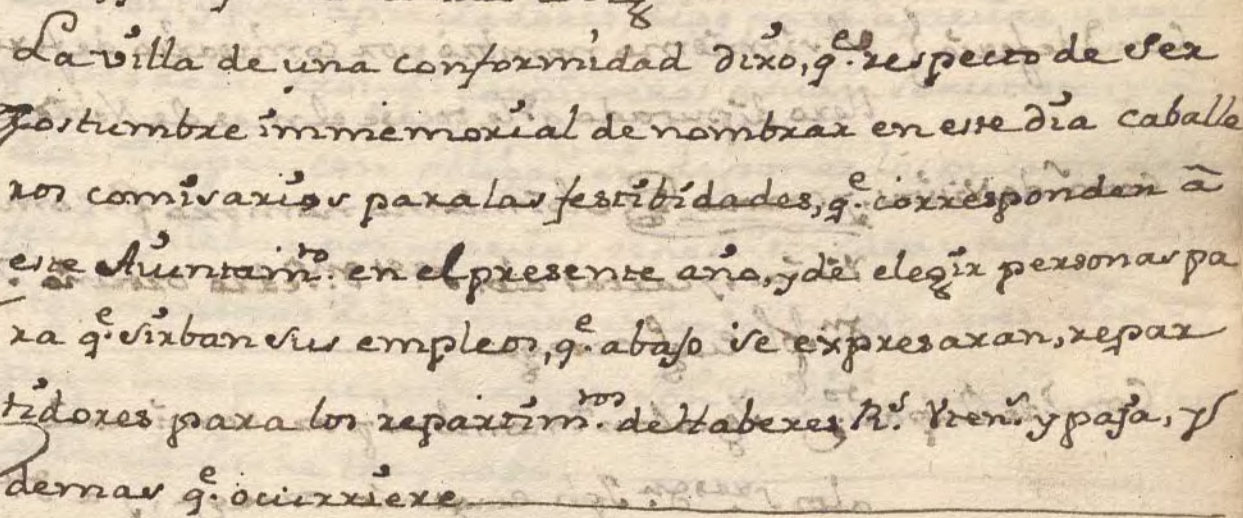 La villa de una conformidad dixo, q.e respecto de ser
costumbre immemorial de nombrar en este dia caballe
ros comisarios para las festibidades, q.e corresponden â
este Aiuntam.to en el presente año, y de elegir personas pa
ra q.e sirban sus empleos, q.e abajo se expresaran, repar
tidores para los repartim.tos de Haberes R.s Vten.s y paja, y
demas q.e ocurriere